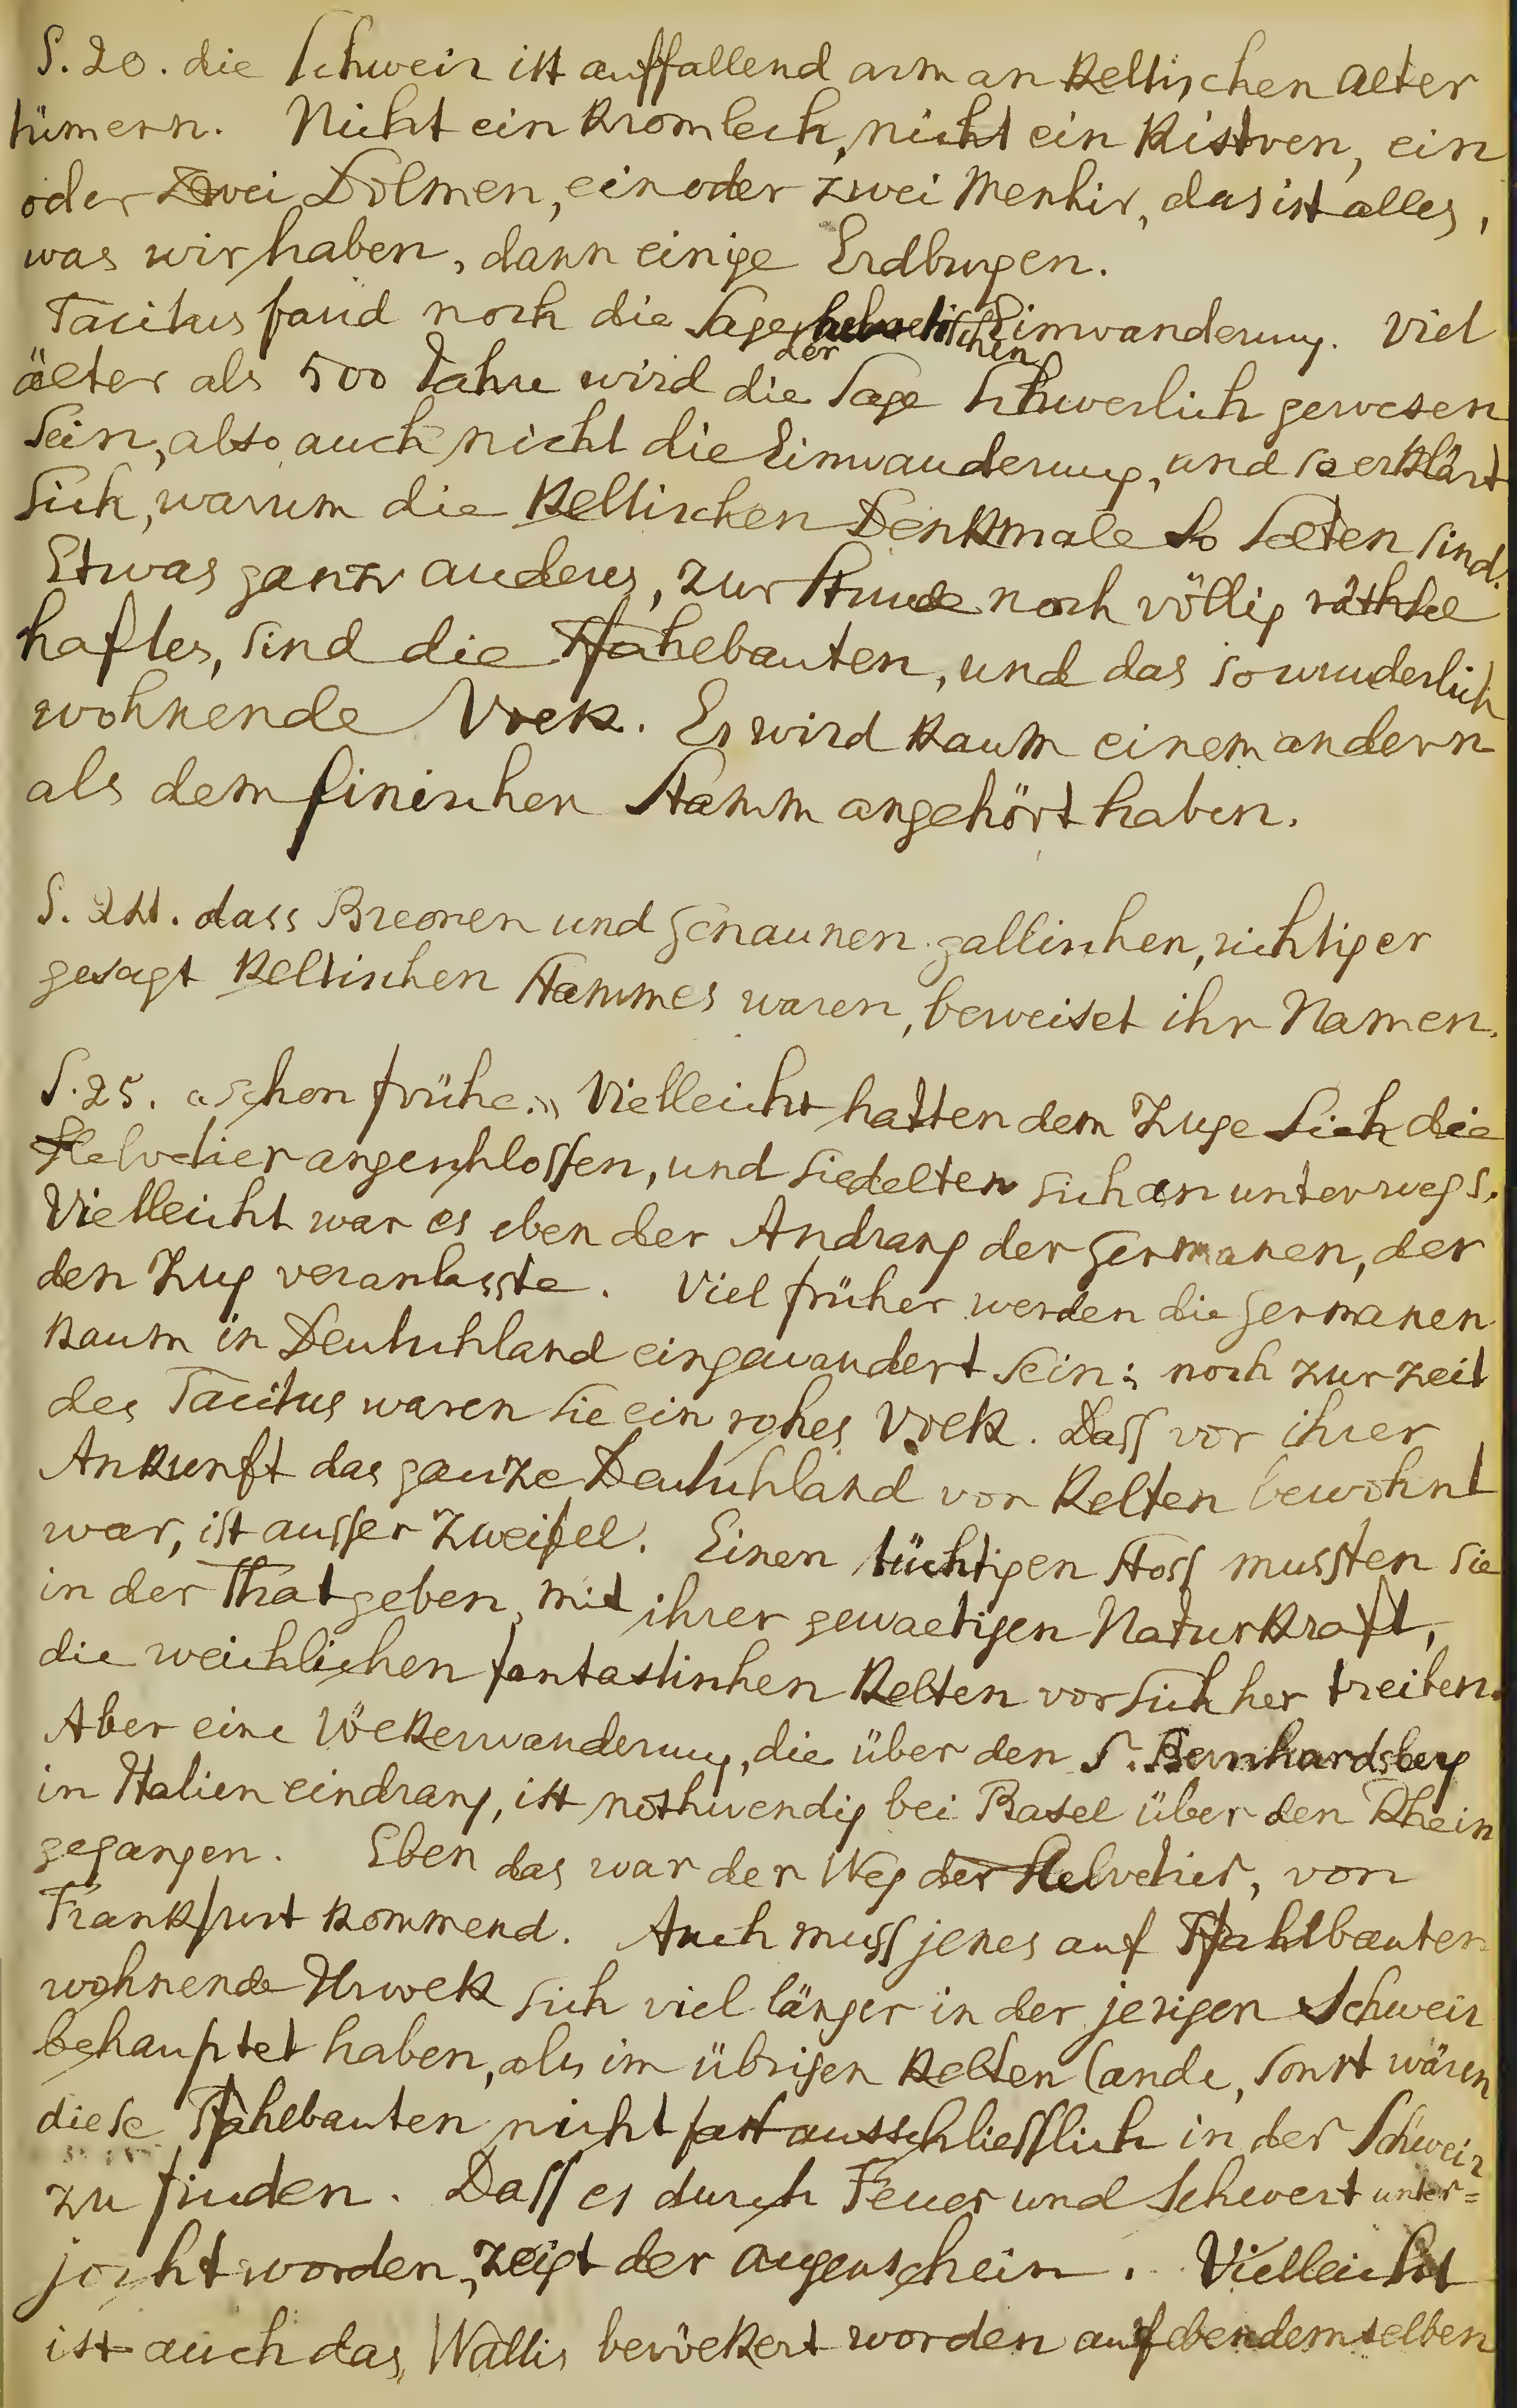 S. 20. die Schweiz ist auffallend arm an Keltischen Alter
tümern. Nicht ein Kromlech, nicht ein Kistven, ein
oder zwei Dolmen, ein oder zwei Menhir, das ist alles,
was wir haben, dann einige Erdburgen.
Tacitus fand noch die Sage der helvetischen Einwanderung. Viel
älter als 500 Jahre wird die Sage schwerlich gewesen
sein, also auch nicht die Einwanderung, und so erklärt
sich, warum die Keltischen Denkmale so selten sind.
Etwas ganz anderes, zur Stunde noch völlig räthsel
haftes, sind die Pfahlbauten, und das so wunderlich
wohnende Volk. Es wird kaum einem andern
als dem finischen Stamm angehört haben.
S. 24. dass Breonen und Genaunen gallischen, richtiger
gesagt Keltischen Stammes waren, beweiset ihr Namen.
S. 25. «schon frühe.» Vielleicht hatten dem Zuge sich die
Helvetier angeschlossen, und siedelten sich an unterwegs.
Vielleicht war es eben der Andrang der Germanen, der
den Zug veranlasste. Viel früher werden die Germanen
kaum in Deutschland eingewandert sein; noch zur Zeit
des Tacitus waren sie ein rohes Volk. Dass vor ihrer
Ankunft das ganze Deutschland von Kelten bewohnt
war, ist ausser Zweifel. Einen tüchtigen Stoss mussten sie
in der That geben, mit ihrer gewaltigen Naturkraft,
die weichlichen fantastischen Kelten vor sich her treiben.
Aber eine Völkerwanderung, die über den S. Bernhardsberg
in Italien eindrang, ist nothwendig bei Basel über den Rhein
gegangen. Eben das war der Weg der Helvetier, von
Frankfurt kommend. Auch muss jenes auf Pfahlbauten
wohnende Urvolk sich viel länger in der jezigen Schweiz
behauptet haben, als im übrigen Kelten lande, sonst wären
diese Pfahlbauten nicht fast ausschliesslich in der Schweiz
zu finden. Dass es durch Feuer und Schwert unter=
jocht worden, zeigt der Augenschein. Vielleicht
ist auch das Wallis bevölkert worden auf ebendemselben